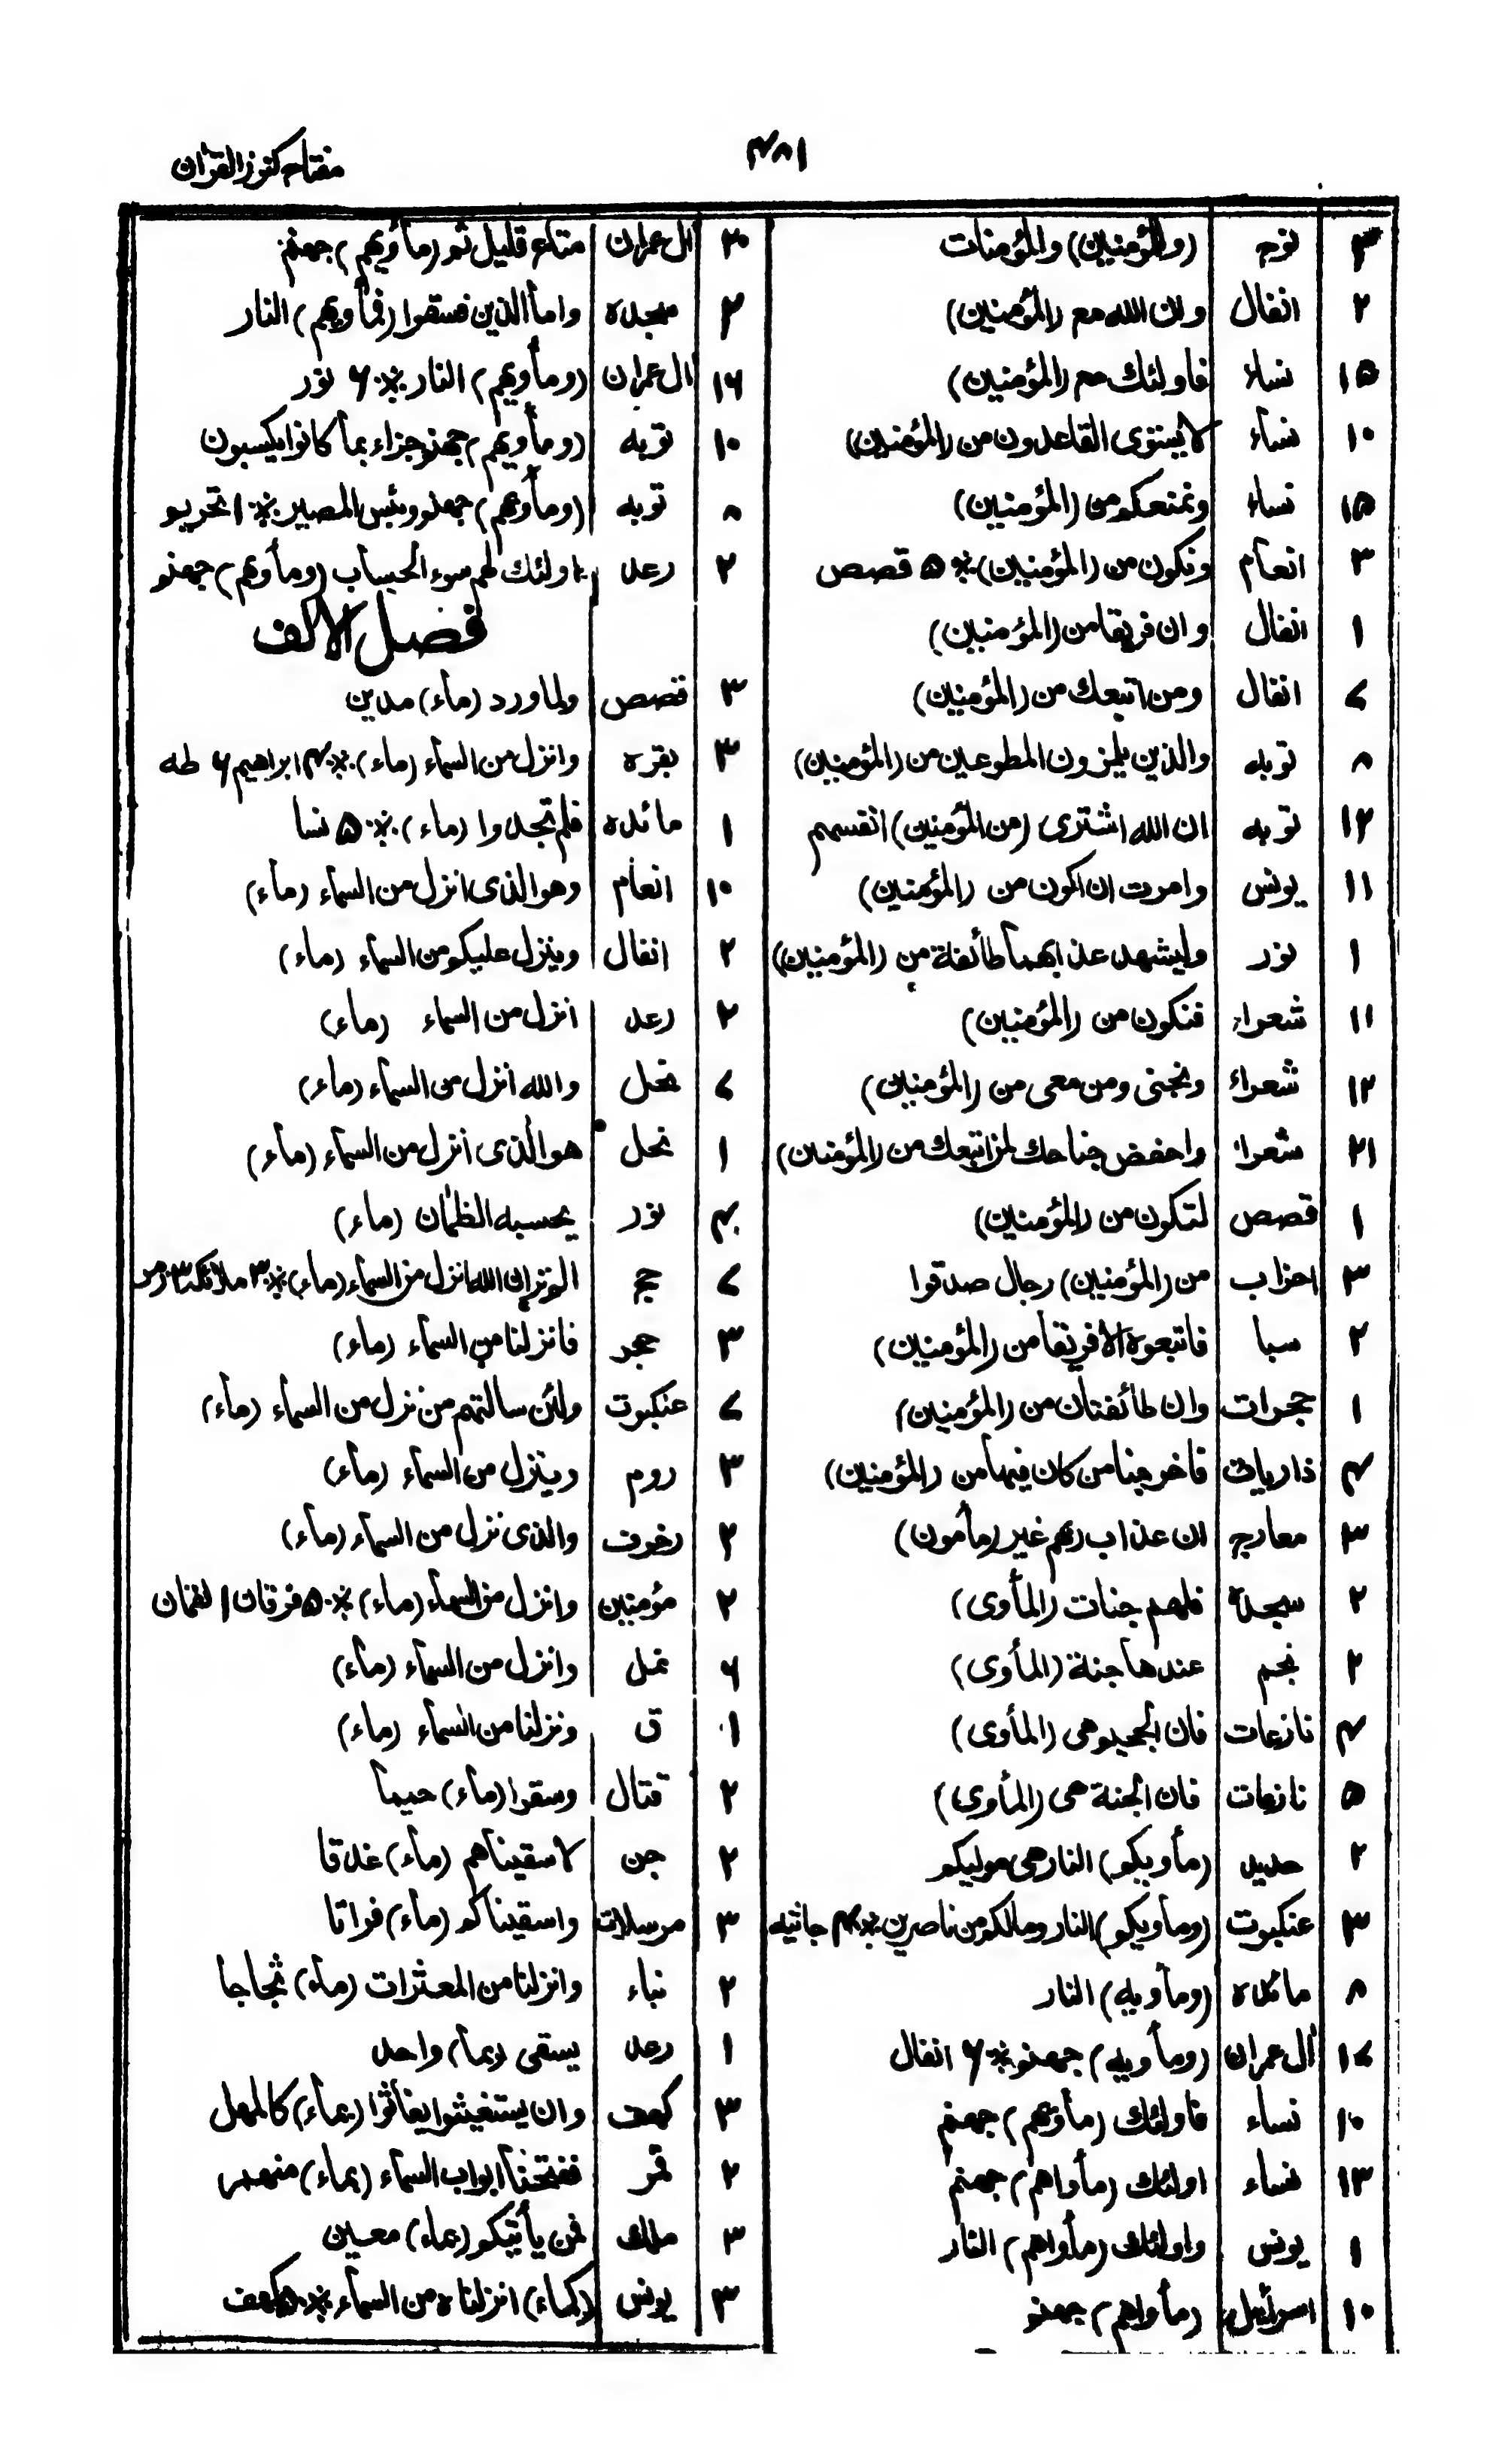 ۴۸۱
مفتاح کنوز القرآن
۳ نوح (والمؤمنین) والمؤمنات
۲ انفال وان الله مع (المؤمنین)
۱۵ نساء فاولئك مع (المؤمنین)
۱۰ نساء لا یستوی القاعدون من (المؤمنین)
۱۵ نساء ونمنعکم من (المؤمنین)
۳ انعام ونکون من (المؤمنین) ٪ ۵ قصص
۱ انفال وان فریقا من (المؤمنین)
۷ انفال ومن اتبعك من (المؤمنین)
۸ توبه والذین یلمزون المطوعین من (المؤمنین)
۱۲ توبه ان الله اشتری (من المؤمنین) انفسهم
۱۱ یونس وامرت ان اکون من (المؤمنین)
۱ نور ولیشهد عذابهما طائفة من (المؤمنین)
۱۱ شعراء فنکون من (المؤمنین)
۱۲ شعراء ونجنی ومن معی من (المؤمنین)
۲۱ شعراء واخفض جناحك لمن اتبعك من (المؤمنین)
۱ قصص لتکون من (المؤمنین)
۳ احزاب من (المؤمنین) رجال صدقوا
۲ سبا فاتبعوه الا فریقا من (المؤمنین)
۱ حجرات وان طائفتان من (المؤمنین)
۴ ذاریات فاخرجنا من کان فیها من (المؤمنین)
۳ معارج ان عذاب ربهم غیر (مأمون)
۲ سجدة فلهم جنات (المأوی)
۲ نجم عندها جنة (المأوی)
۴ نازعات فان الجحیم هی (المأوی)
۵ نازعات فان الجنة هی (المأوی)
۲ حدید (مأویکم) النار هی مولیکم
۳ عنکبوت (ومأویکم) النار ومالکم من ناصرین ٪ ۴ جاثیه
۸ مائده (ومأویه) النار
۱۷ ال عمران (ومأویه) جهنم ٪ ۶ انفال
۱۰ نساء فاولئك (مأویهم) جهنم
۱۳ نساء اولئك (مأواهم) جهنم
۱ یونس واولئك (مأواهم) النار
۱۰ اسرائیل (مأواهم) جهنم
۲۰ ال عمران متاع قلیل ثم (مأویهم) جهنم
۲ سجده واما الذین فسقوا (فمأویهم) النار
۱۶ ال عمران (ومأویهم) النار ٪ ۶ نور
۱۰ توبه (ومأویهم) جهنم جزاء بما کانوا یکسبون
۸ توبه (ومأوهم) جهنم وبئس المصیر ٪ ۱ تحریم
۲ رعد اولئك لهم سوء الحساب (ومأوهم) جهنم
فصل الالف
۳ قصص ولما ورد (ماء) مدین
۳ بقره وانزل من السماء (ماء) ٪ ۴ ابراهیم ۶ طه
۱ مائده فلم تجدوا (ماء) ٪ ۵ نسا
۱۰ انعام وهو الذی انزل من السماء (ماء)
۲ انفال وینزل علیکم من السماء (ماء)
۲ رعد انزل من السماء (ماء)
۷ نحل والله انزل من السماء (ماء)
۱ نحل هو الذی انزل من السماء (ماء)
۴ نور یحسبه الظمان (ماء)
۷ حج الم تر ان الله انزل من السماء (ماء) ٪ ۳ ملائکه ۳ زمر
۳ حجر فانزلنا من السماء (ماء)
۷ عنکبوت ولئن سالتهم من نزل من السماء (ماء)
۳ روم وینزل من السماء (ماء)
۲ زخرف والذی نزل من السماء (ماء)
۲ مؤمنین وانزل من السماء (ماء) ٪ ۵ فرقان ۱ لقمان
۶ نمل وانزل من السماء (ماء)
۱ ق ونزلنا من السماء (ماء)
۲ قتال وسقوا (ماء) حمیما
۲ جن لاسقیناهم (ماء) غدقا
۳ مرسلات واسقیناکم (ماء) فراتا
۲ نباء وانزلنا من المعثرات (ماء) ثجاجا
۱ رعد یسقی (بماء) واحد
۳ کهف وان یستغیثوا یغاثوا (بماء) کالمهل
۲ قمر ففتحنا ابواب السماء (بماء) منهمر
۳ ملك فمن یأتیکم (بماء) معین
۳ یونس (کماء) انزلناه من السماء ٪ ۵ کهف